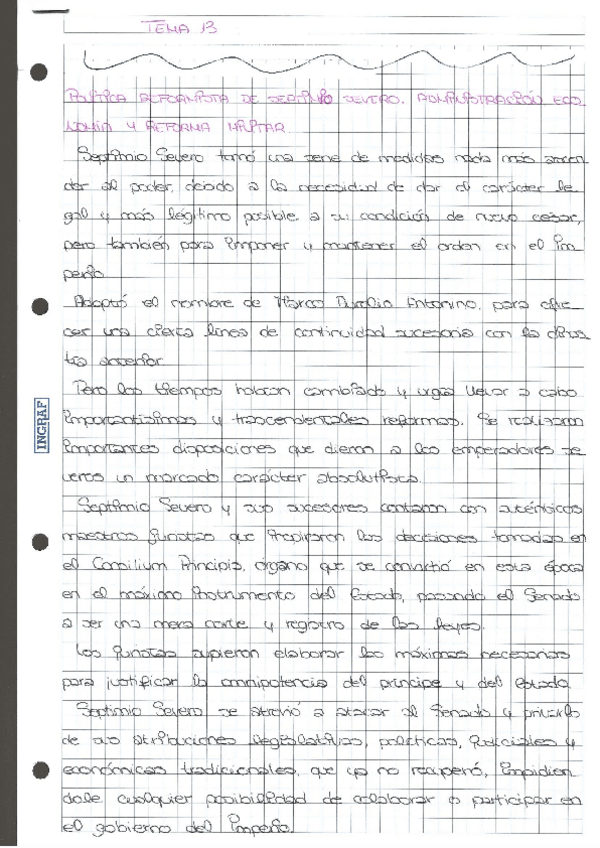 TEMA 13
POLÍTICA REFORMISTA DE SEPTIMIO SEVERO. ADMINISTRACIÓN ECO
NOMÍA Y REFORMA MILITAR
Septimio Severo tomó una serie de medidas nada más acceder
der al poder, debido a la necesidad de dar el carácter le
gal y más legítimo posible a su condición de nuevo cesar,
pero también para imponer y mantener el orden en el im
perio.
Adoptó el nombre de Marco Aurelio Antonino, para ofre
cer una cierta línea de continuidad sucesoria con la dinas
tía anterior.
Pero los tiempos habían cambiado y urgía llevar a cabo
importantísimas y trascendentales reformas. Se realizaron
importantes disposiciones que dieron a los emperadores se
veros un marcado carácter absolutista.
Septimio Severo y sus sucesores contaron con auténticos
maestros juristas que inspiraron las decisiones tomadas en
el Consilium Principis, órgano que se convirtió en esta época
en el máximo instrumento del Estado, pasando el Senado
a ser una mera corte y registro de las leyes.
Los juristas supieron elaborar las máximas necesarias
para justificar la omnipotencia del príncipe y del estado
Septimio Severo se atrevió a atacar al Senado y privarlo
de sus atribuciones legislativas, políticas, judiciales y
económicas tradicionales, que ya no recuperó, impidien
dole cualquier posibilidad de colaborar o participar en
el gobierno del imperio.
INGRAF